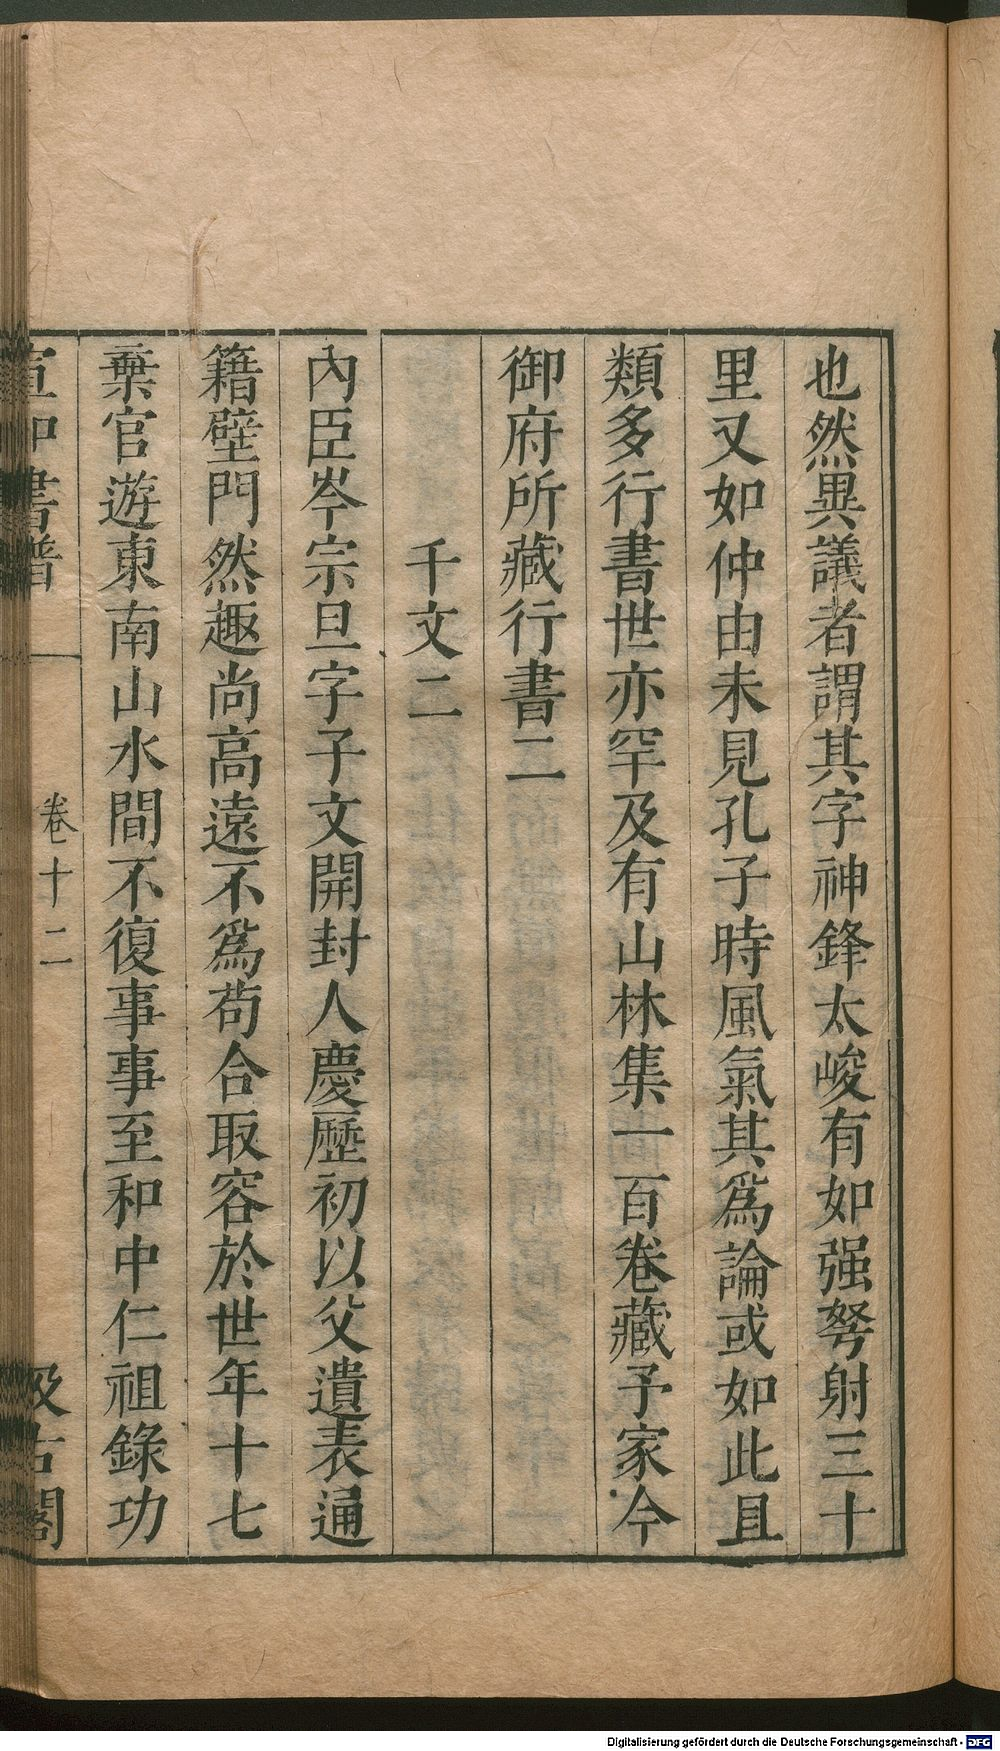 也然異議者謂其字神鋒太峻有如强弩射三十
里又如仲由未見孔子時風氣其爲論或如此且
類多行書世亦罕及有山林集一百卷藏予家今
御府所藏行書二
千文二
內臣岑宗旦字子文開封人慶歷初以父遺表通
籍壁門然趣尚高遠不爲苟合取容於世年十七
棄官遊東南山水間不復事事至和中仁祖錄功
宣和書譜 卷十二 汲古閣
Digitalisierung gefördert durch die Deutsche Forschungsgemeinschaft - DFG